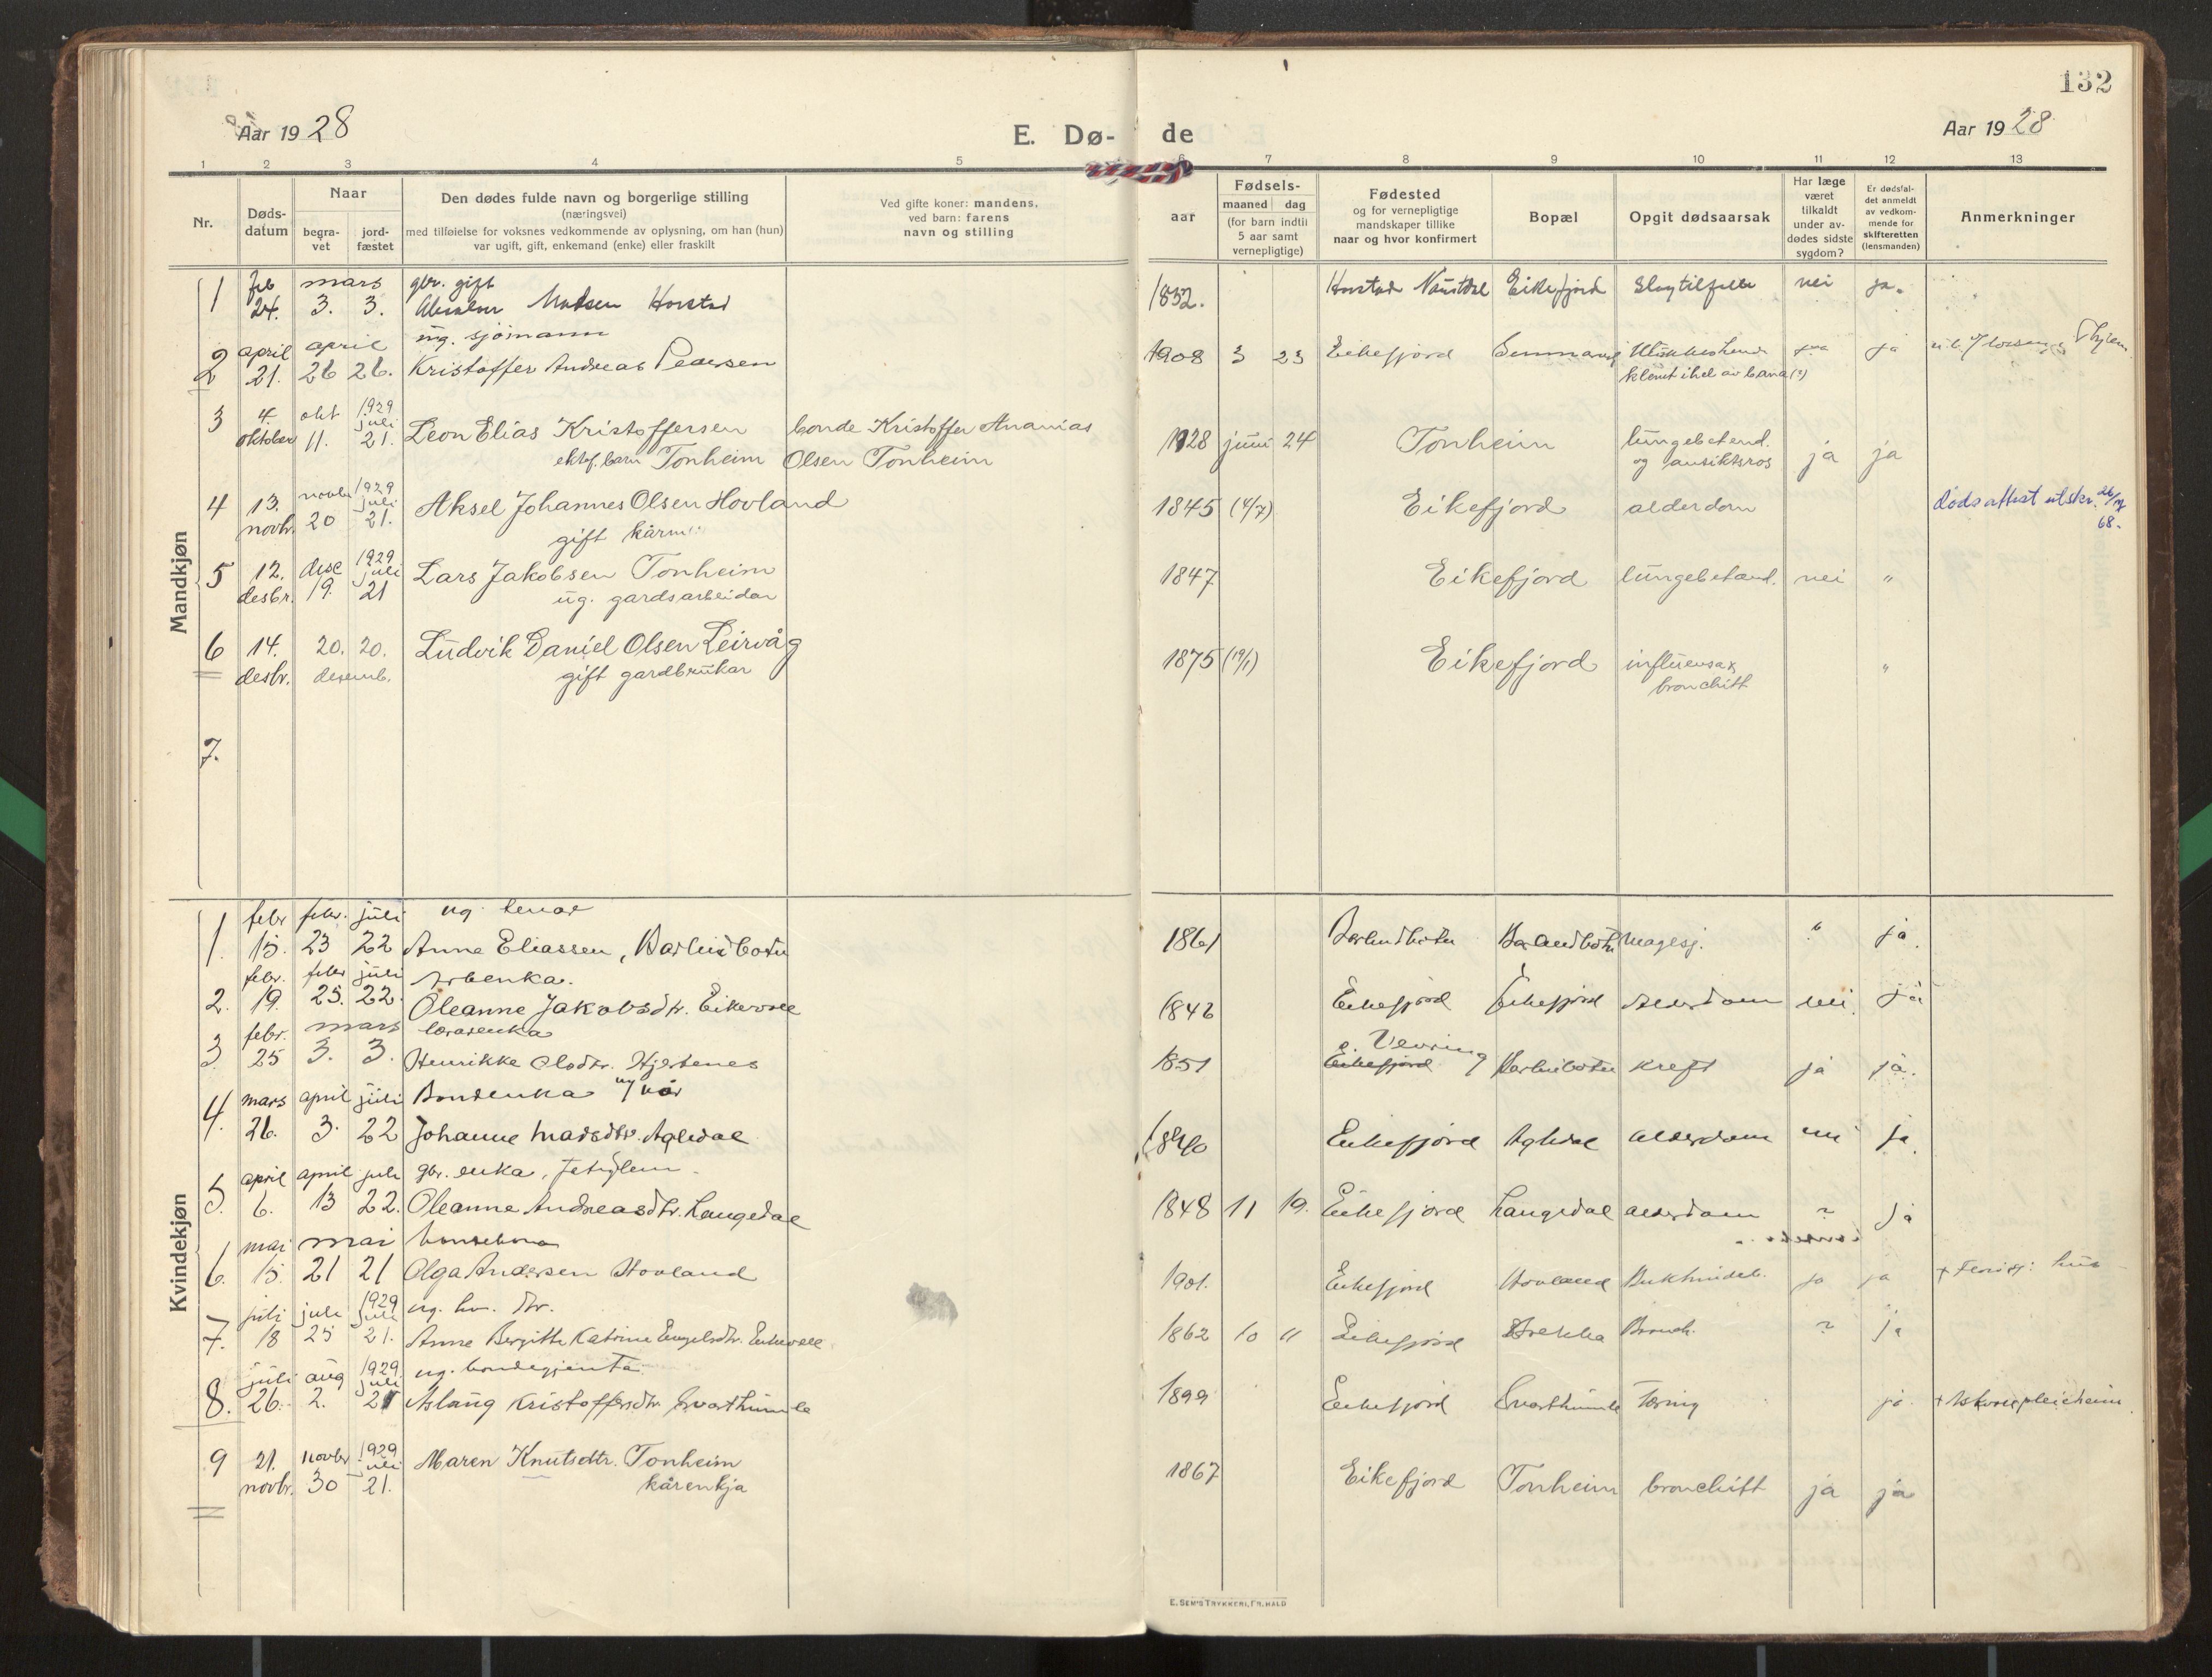 132
Aar 1928
E. Dø- de
Aar 1928
1 2 3 4 5 6 7 8 9 10 11 12 13
Nr.
Døds-
datum
Naar
begra-
vet
jord-
fæstet
Den dødes fulde navn og borgerlige stilling
(næringsvei)
med tilføielse for voksnes vedkommende av oplysning, om han (hun)
var ugift, gift, enkemand (enke) eller fraskilt
Ved gifte koner: mandens,
ved barn: farens
navn og stilling
aar
Fødsels-
maaned dag
(for barn indtil
5 aar samt
vernepligtige)
Fødested
og for vernepligtige
mandskaper tillike
naar og hvor konfirmert
Bopæl
Opgit dødsaarsak
Har læge
været
tilkaldt
under av-
dødes sidste
sygdom?
Er dødsfal-
det anmeldt
av vedkom-
mende for
skifteretten
(lensmanden)
Anmerkninger
Mandkjøn
feb mars gbr. gift
1 24. 3. 3. Madsen Horstad 1832. Horstad Naustdal Eikefjord Slagtilfelle nei ja.
april april ug. sjømann
2 21. 26 26. Kristoffer Andreas Pedersen 1908 3 23 Eikefjord ja
klemt ihel av (?)
3 4. okt 1929 juli
oktober 11. 21. Leon Elias Kristoffersen bonde Kristoffer Ananias 1928 juni 24 Tonheim lungebetend.
ektef. barn Tonheim Olsen Tonheim og ansiktsros ja ja
4 13. novbr 1929 juli
novbr. 20 21. Aksel Johannes Olsen Hovland 1845 (4/7) Eikefjord alderdom dødsattest utskr.
68.
gift
5 12. des 1929 juli
desbr. 19. 21 Lars Jakobsen Tonheim 1847 Eikefjord lungebetend. nei "
ug. gardsarbeidar
6 14. 20. 20. Ludvik Daniel Olsen Leirvåg 1875 (19/1) Eikefjord influensa "
desbr. desemb. gift gardbrukar bronchitt
7.
Kvindekjøn
febr febr. juli ug.
1. 15. 23 22 Anne Eliassen, 1861 magesj. " ja.
febr. febr juli
2. 19. 25. 22. Oleanne Jakobsdtr. Eikevoll 1846 Eikefjord Eikefjord Alderdom nei. ja
febr. mars lærarenka
3. 25 3. 3. Henrikke Olsdtr. Hjertenes 1851 Vevring Eikefjord kreft ja ja.
mars april juli Bondenka
4. 26. 3. 22 Johanne Madsdtr. Apledal 1840 Eikefjord Apledal alderdom nei ja.
april april juli gbr. enka,
5. 6. 13 22. Oleanne Andreasdtr. Langedal 1848 11 19. Eikefjord Langedal alderdom ? ja
mai mai
6. 15. 21 21 Olga Andersen Hovland 1901. Eikefjord Hovland Bukhindeb. ja ja
juli juli 1929 juli ug. dtr.
7. 18 25 21. Anne Bergitte Katrine Engelsdtr. Eikevoll 1862 10 11 Eikefjord Bronch. ? ja
juli aug 1929 juli ug. bondegjenta
8. 26. 2. 21 Aslaug Kristoffersdtr. Svarthumle 1899 Eikefjord Svarthumle Tæring ja.
9 21. novbr 1929 juli
novbr. 30 21. Maren Knutsdtr. Tonheim 1867 Eikefjord Tonheim bronchitt ja ja
kårenkja
E. SEM'S TRYKKERI, FR.HALD